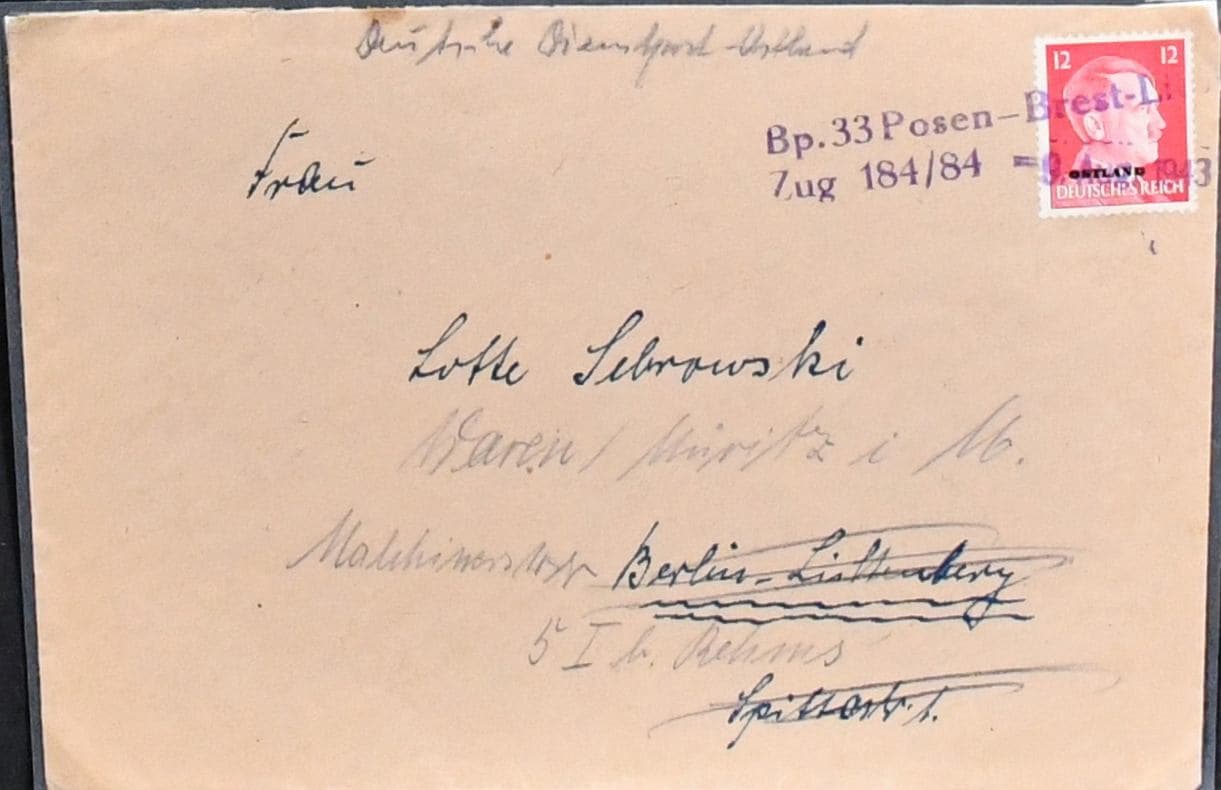 Deutsche Dienstpost Ostland
12 12
Bp. 33 Posen–Brest-Li
Zug 184/84 =9. Aug. 1943
OSTLAND
DEUTSCHES REICH
Frau
Lotte Sebrowski
Waren / Müritz i M.
Berlin-Lichtenberg
5 I b. Rehms